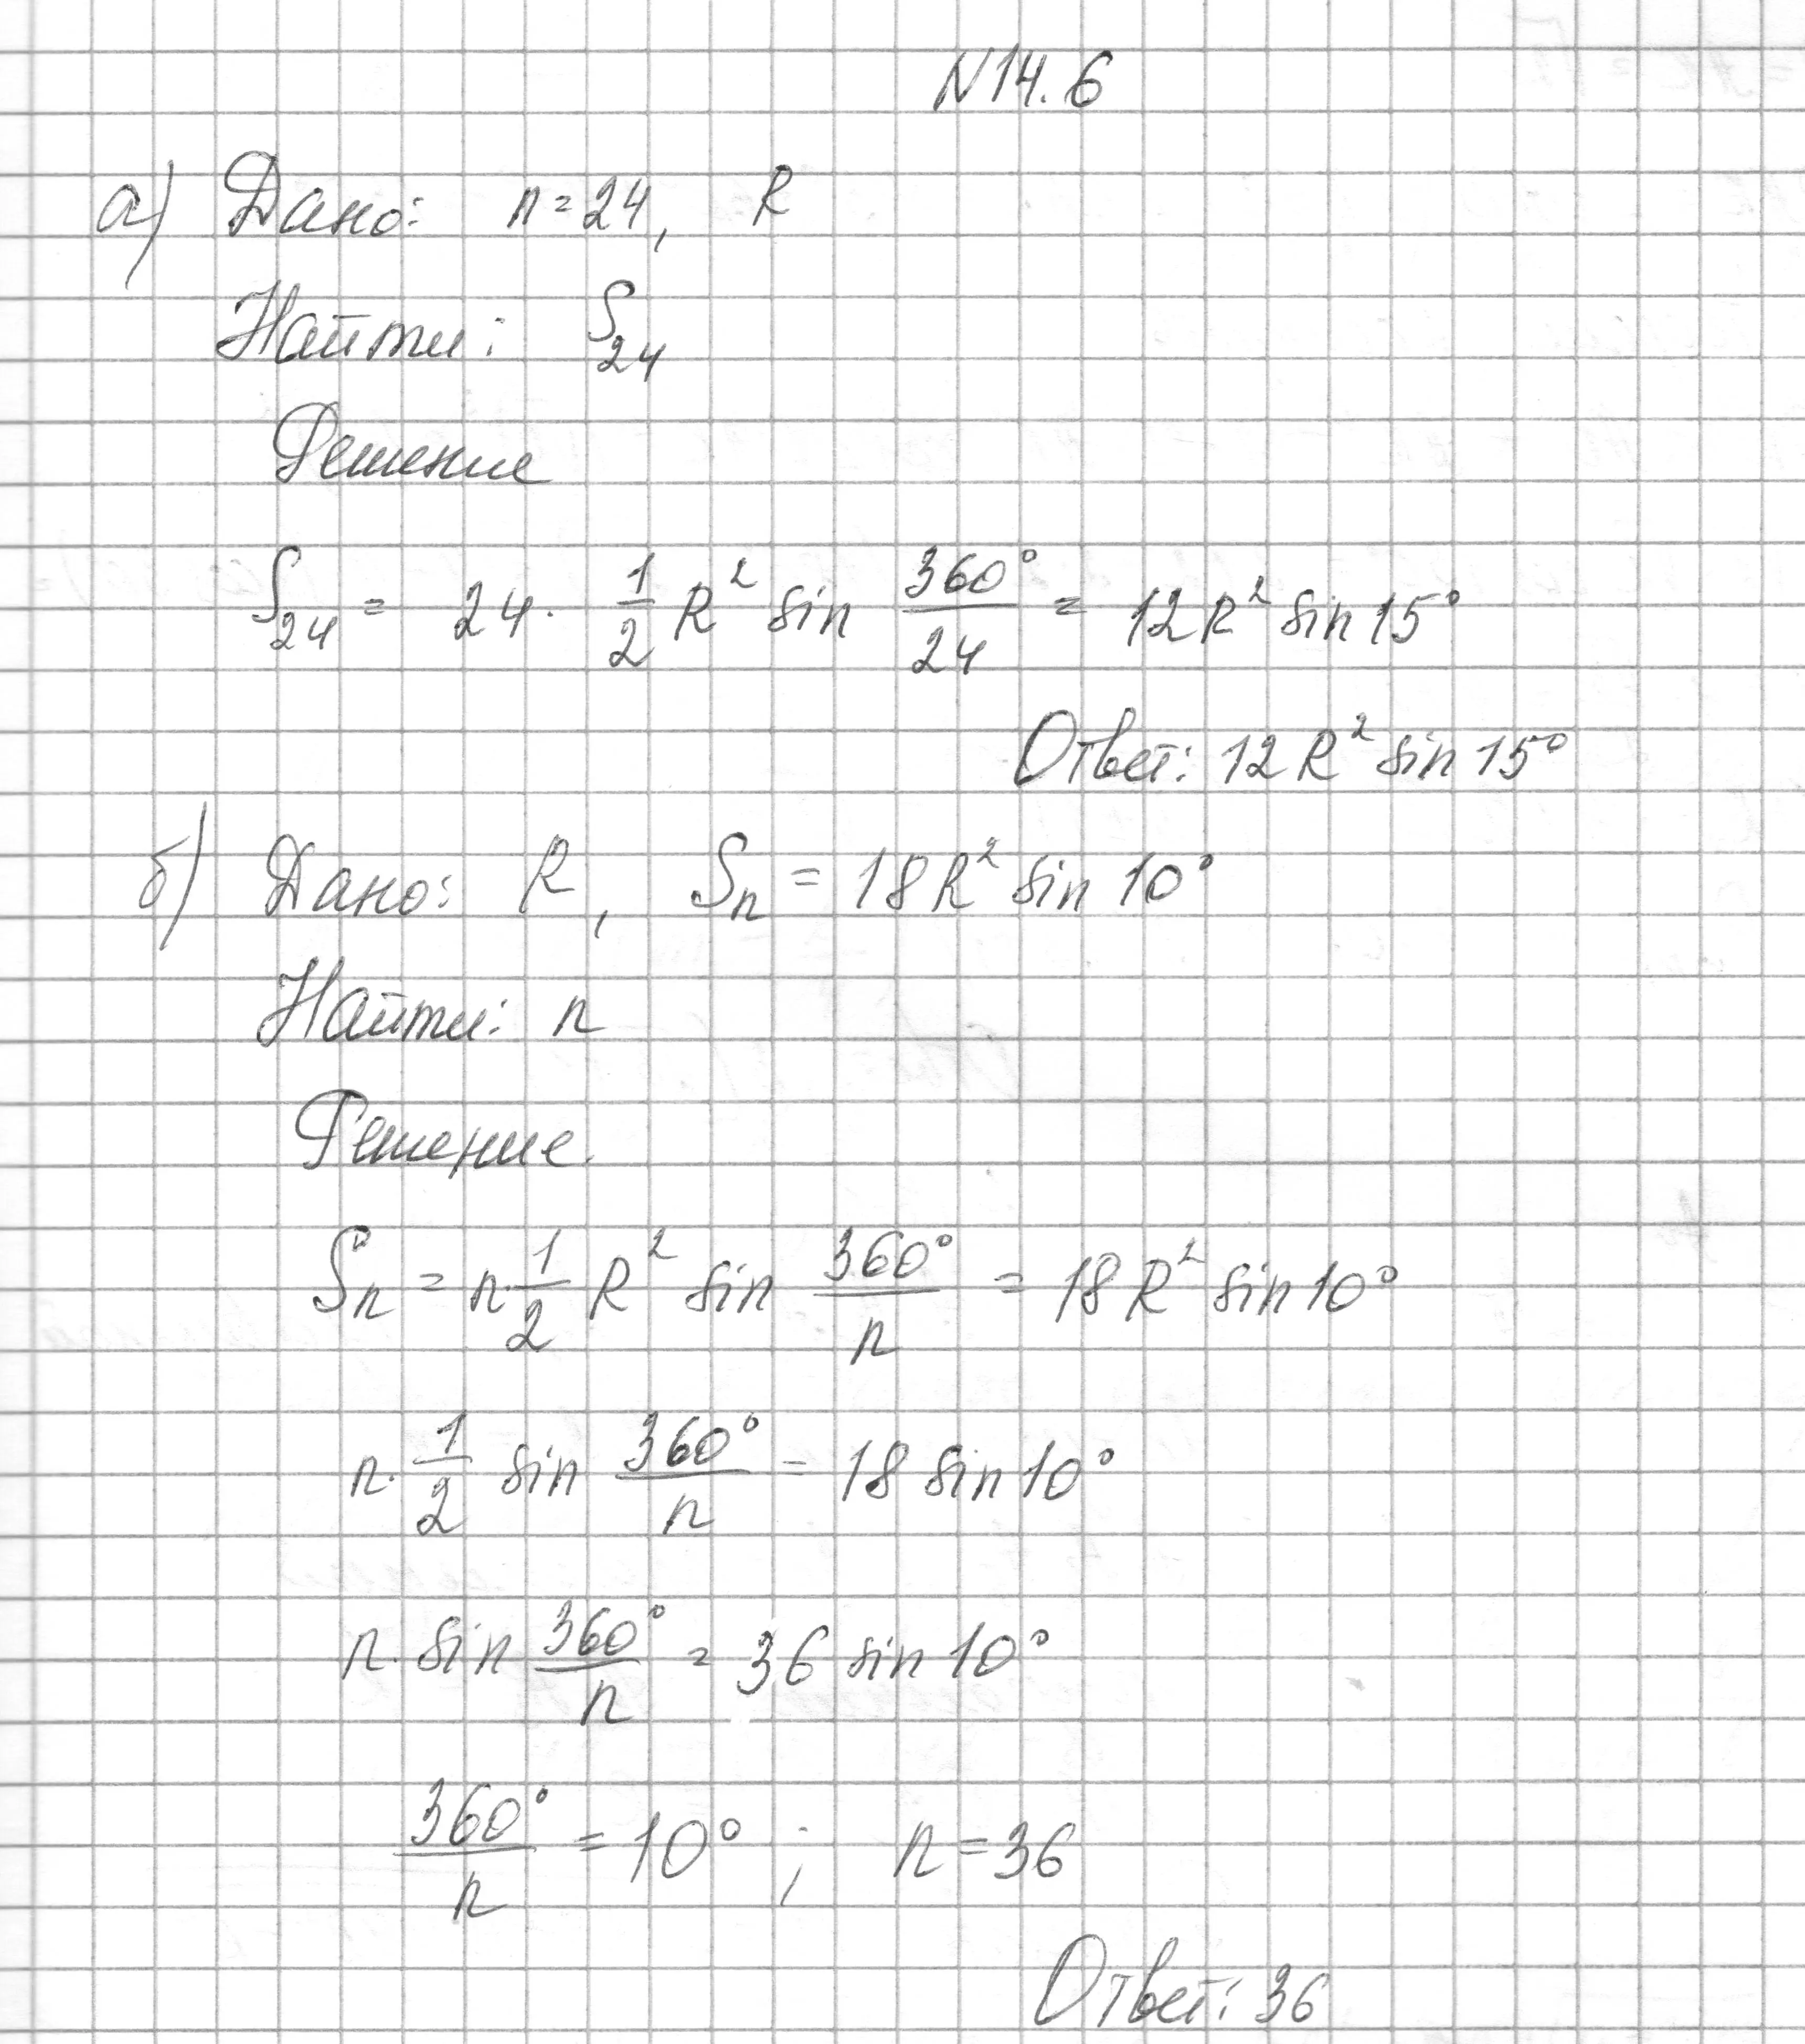 N14.6
а) Дано: n = 24, R
Найти: S₂₄
Решение
S₂₄ = 24 · 1/2 R² sin 360°/24 = 12R² sin 15°
Ответ: 12R² sin 15°
б) Дано: R, Sₙ = 18R² sin 10°
Найти: n
Решение.
Sₙ = n · 1/2 R² sin 360°/n = 18R² sin 10°
n · 1/2 sin 360°/n = 18 sin 10°
n · sin 360°/n = 36 sin 10°
360°/n = 10° ; n = 36
Ответ: 36